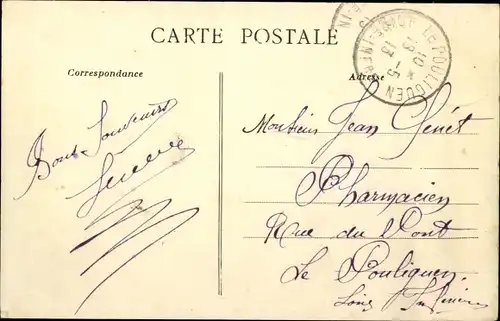 CARTE POSTALE
Correspondance
Adresse
LE POULIGUEN
Bons Souvenirs
Monsieur Jean Génet
Pharmacien
Rue du Pont
Le Pouliguen
Loire Inférieure